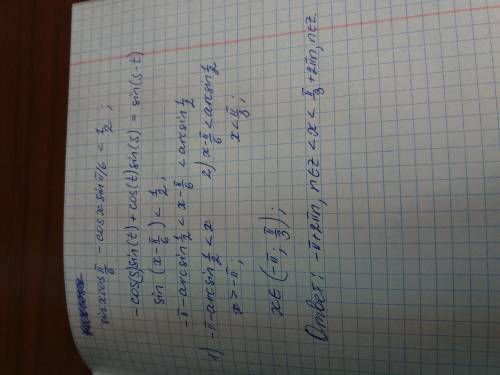 sinxcos π/6 - cosx sin π/6 < 1/2 ;
-cos(s)sin(t) + cos(t)sin(s) = sin(s-t)
sin (x - π/6) < 1/2 ;
-π - arcsin 1/2 < x - π/6 < arcsin 1/2
1) -π - arcsin 1/2 < x 2) x - π/6 < arcsin 1/2
x > -π ; x < π/3 ;
x ∈ (-π ; π/3) ;
Ответ: -π + 2πn, n∈z < x < π/3 + 2πn, n∈z.